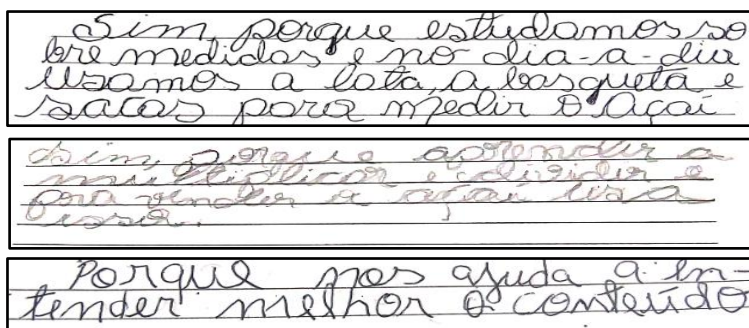 Sim, porque estudamos so
bre medidas e no dia-a-dia
usamos a lata, a basqueta e
sacas para medir o açaí
Sim, porque aprender a
multiplicar e dividir e
pra vender a açaí usa
isso.
Porque nos ajuda a en-
tender melhor o conteúdo